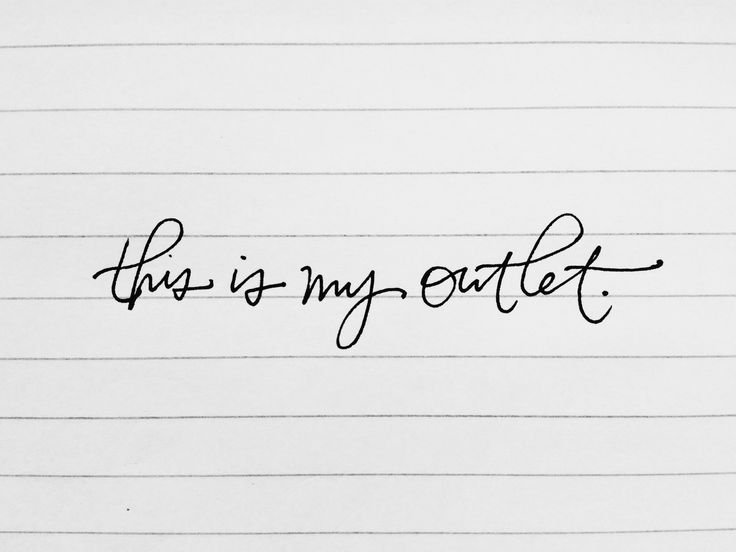 this is my outlet.